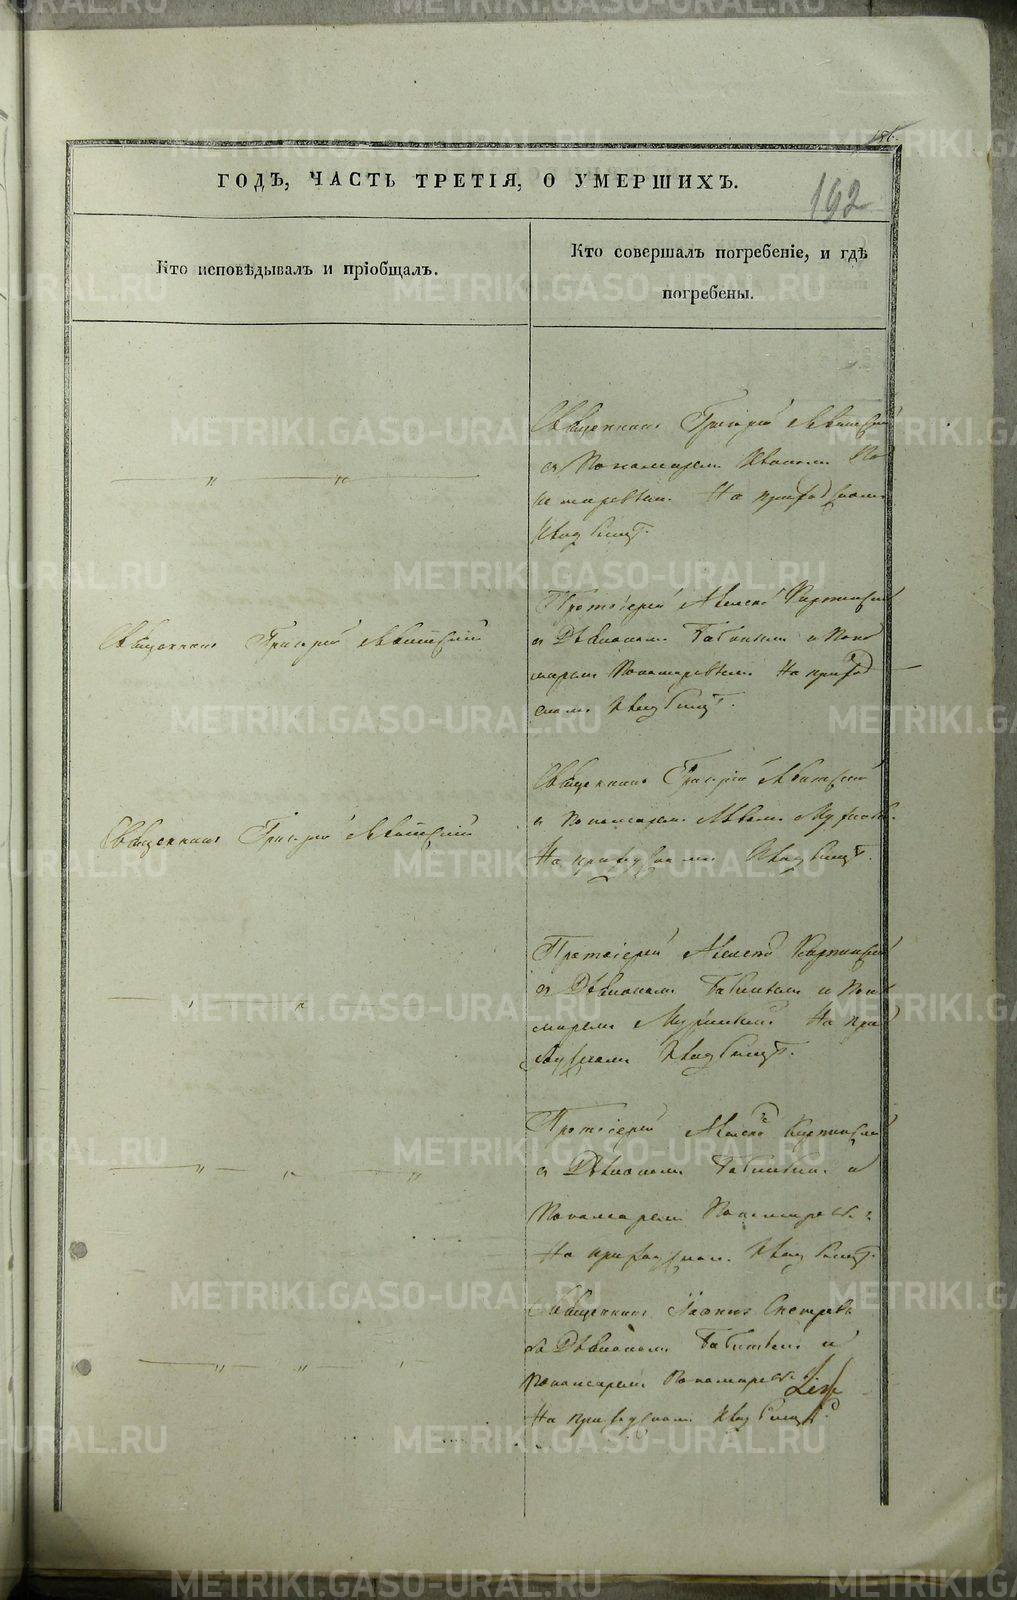 186.
ГОДЪ, ЧАСТЬ ТРЕТІЯ, О УМЕРШИХЪ.
192
Кто исповѣдывалъ и пріобщалъ.
Кто совершалъ погребеніе, и гдѣ
погребены.
Священникъ Григорій Левитскій
съ Пономаремъ Иваномъ По
номаревымъ На приходскомъ
Кладбищѣ.
Священникъ Григорій Левитскій
Протоіерей Алексѣй Карпинскій
съ Діакономъ Бабинымъ и Поно
маремъ Пономаревымъ На приход
скомъ Кладбищѣ.
Священникъ Григорій Левитскій
Священникъ Григорій Левитскій
съ Пономаремъ
На приходскомъ Кладбищѣ.
Протоіерей Алексѣй Карпинскій
съ Діакономъ Бабинымъ и Поно
маремъ На при
ходскомъ Кладбищѣ.
Протоіерей Алексѣй Карпинскій
съ Діакономъ Бабинымъ и
Пономаремъ Пономаревымъ
На приходскомъ Кладбищѣ.
Священникъ Іоаннъ
съ Діакономъ Бабинымъ и
Пономаремъ Пономаревымъ
На приходскомъ Кладбищѣ.
METRIKI.GASO-URAL.RU